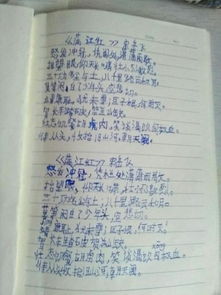 《满江红》 岳飞
怒发冲冠，凭阑处潇潇雨歇。
抬望眼，仰天长啸，壮怀激烈。
三十功名尘与土，八千里路云和月。
莫等闲白了少年头，空悲切。
靖康耻，犹未雪；臣子恨，何时灭。
驾长车踏破，贺兰山缺。
壮志饥餐胡虏肉，笑谈渴饮匈奴血。
待从头，收拾旧山河，朝天阙。
《满江红》 岳飞
怒发冲冠，凭栏处潇潇雨歇。
抬望眼，仰天长啸，壮怀激烈。
三十功名尘与土，八千里路云和月。
莫等闲白了少年头，空悲切。
靖康耻，犹未雪；臣子恨，何时灭。
驾长车踏破贺兰山缺。
xiōng
壮志饥餐胡虏肉，笑谈渴饮匈奴血。
待从头收拾旧山河，朝天阙。